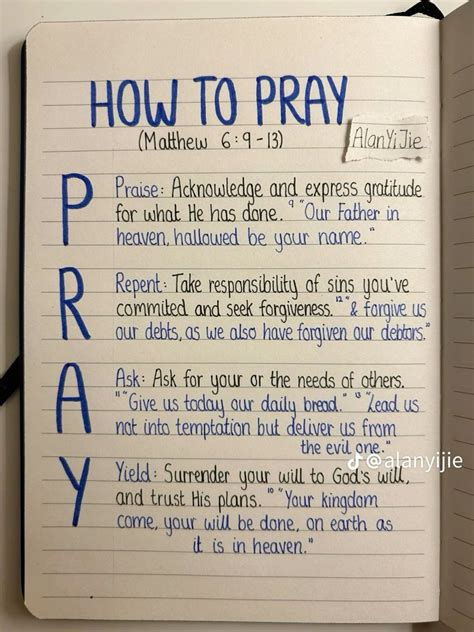 HOW TO PRAY
(Matthew 6:9-13)
AlanYiJie
P
Praise: Acknowledge and express gratitude
for what He has done. 9 "Our Father in
heaven, hallowed be your name."
R
Repent: Take responsibility of sins you've
commited and seek forgiveness. 12 "& forgive us
our debts, as we also have forgiven our debtors."
A
Ask: Ask for your or the needs of others.
11 "Give us today our daily bread." 13 "Lead us
not into temptation but deliver us from
the evil one."
@alanyijie
Y
Yield: Surrender your will to God's will,
and trust His plans. 10 "Your kingdom
come, your will be done, on earth as
it is in heaven."